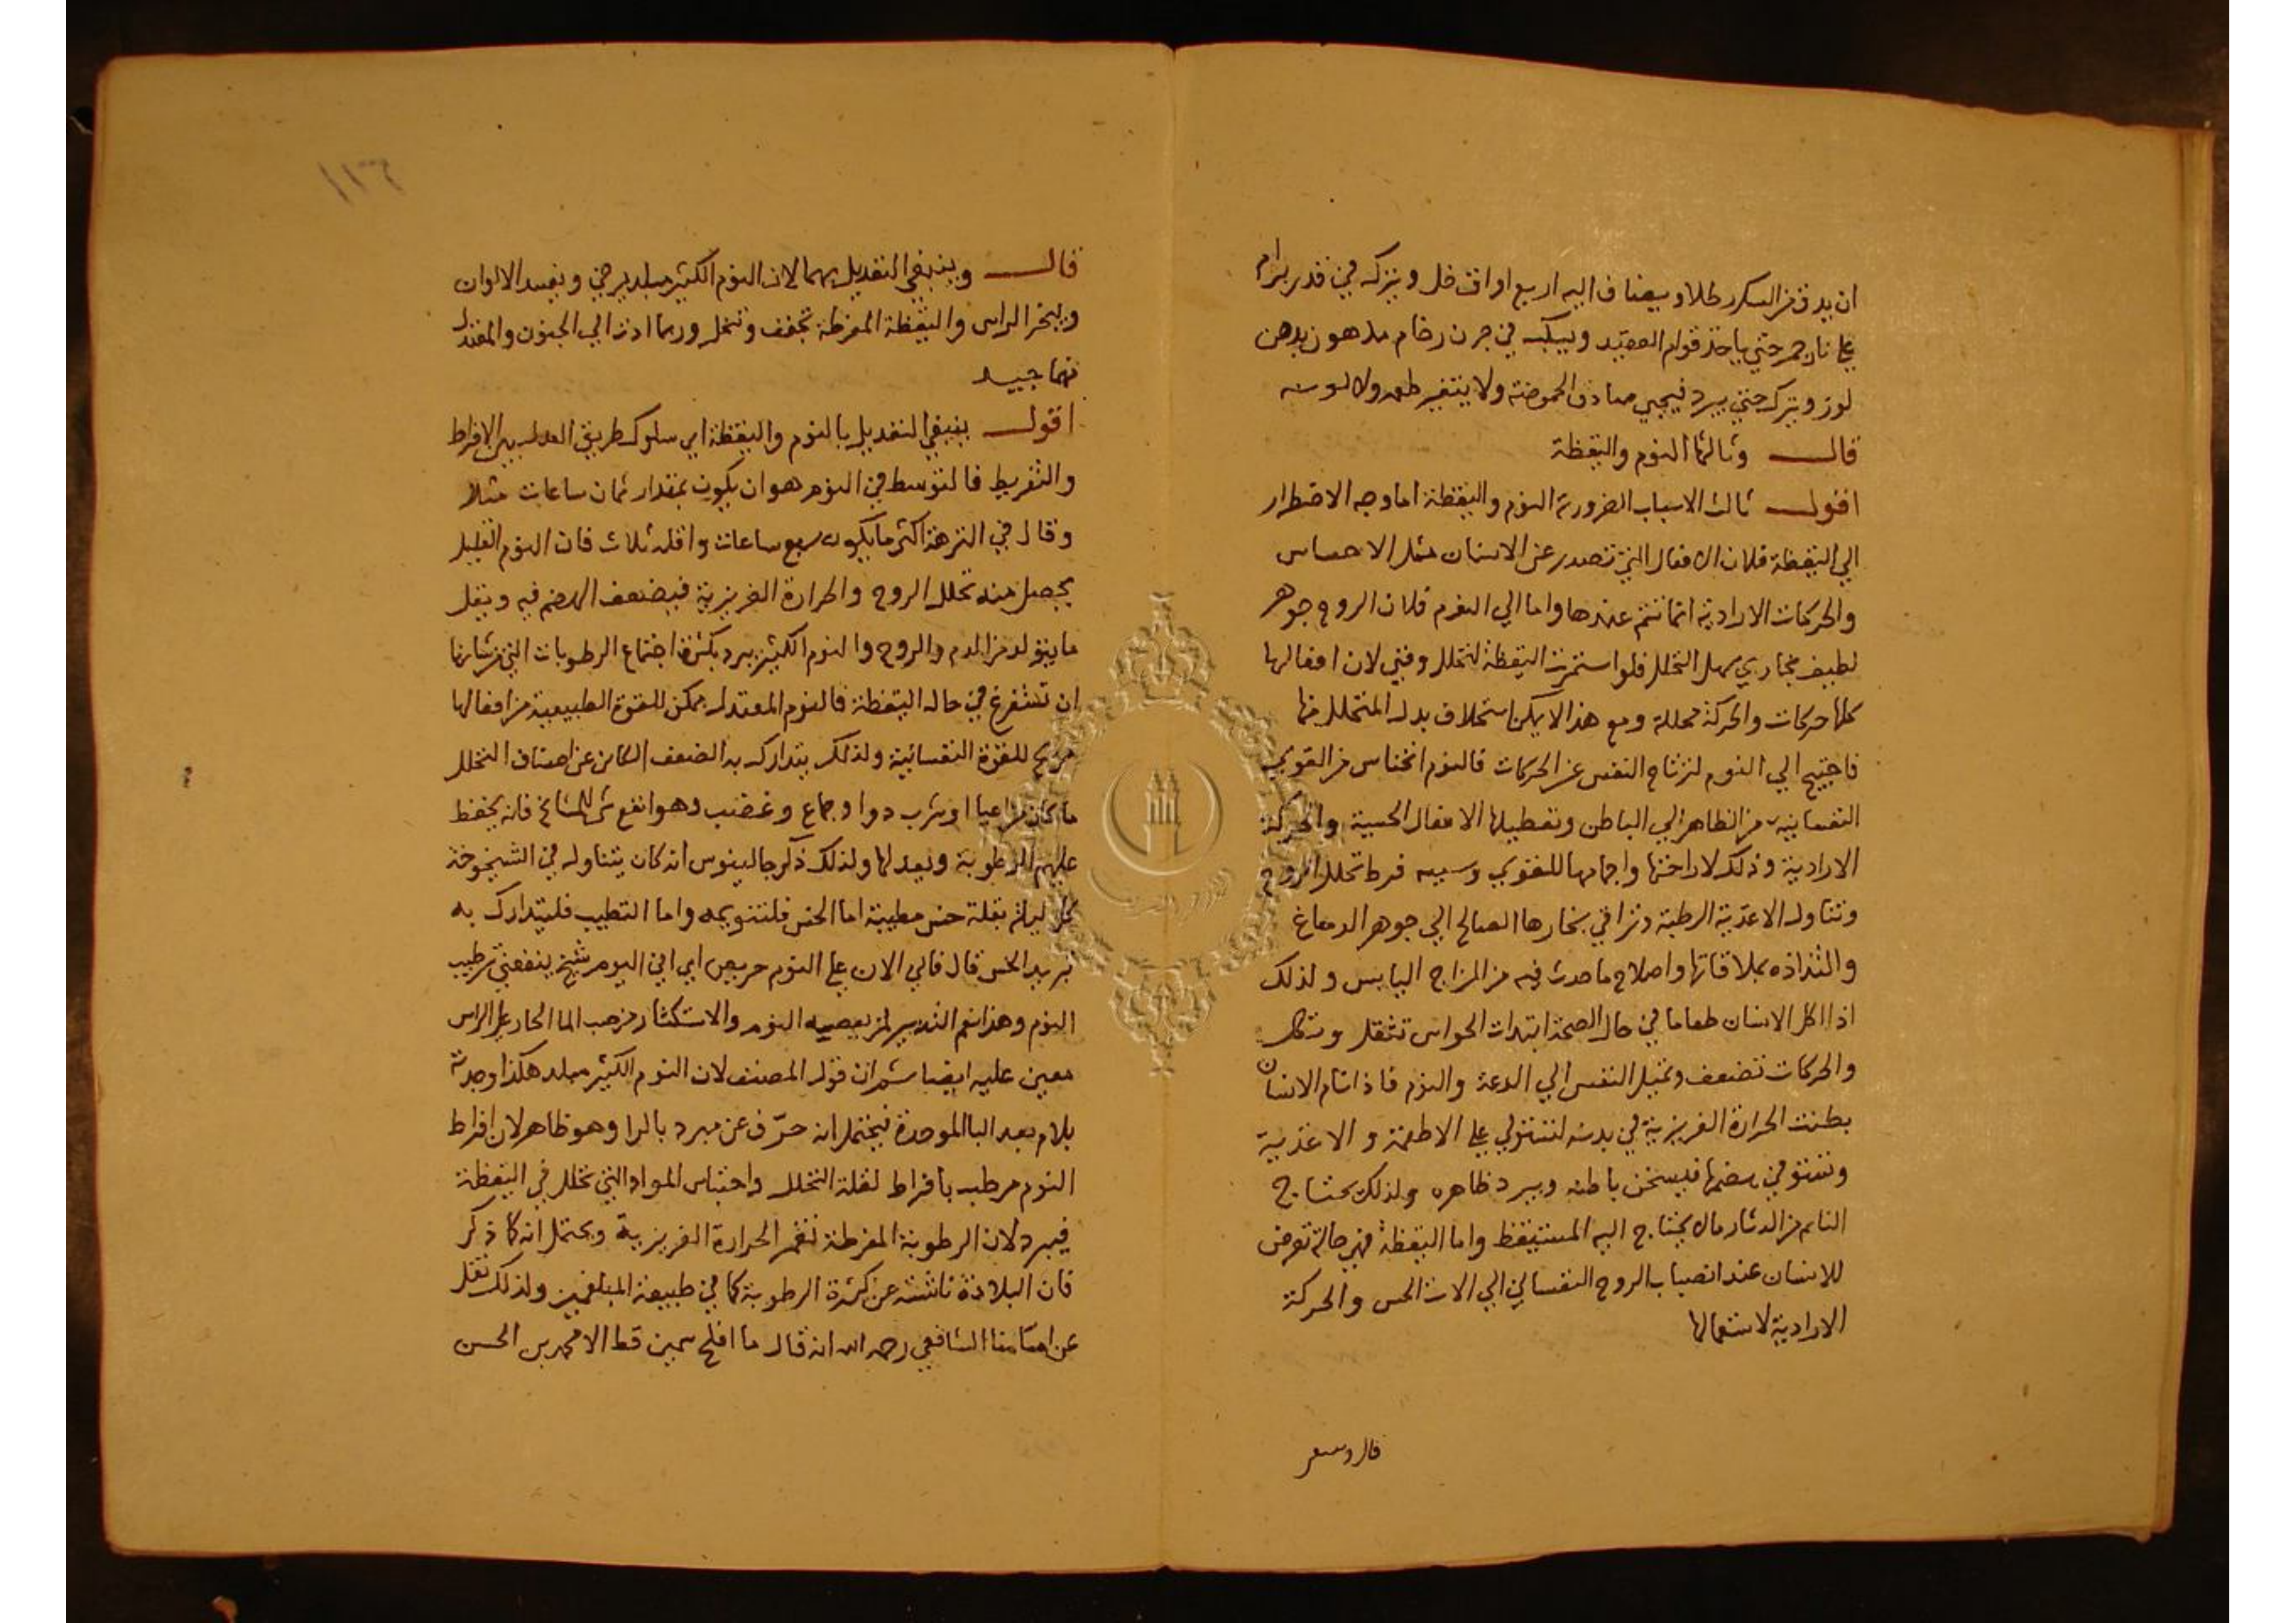 ان يدق من السكر رطلا ويضاف اليه اربع اواق خل ويتركه في قدر برام
علي نار جمر حتي ياخذ قوام العقيد ويسكبه في جرن رخام مدهون بدهن
لوز ويترك حتي يبرد فيجي صادق الحموضة ولا يتغير طعمه ولا لونه
قال وثالثها النوم واليقظة
اقول ثالث الاسباب الضرورية النوم واليقظة اما وجه الاضطرار
الي اليقظة فلان الافعال التي تصدر عن الانسان مثل الاحساس
والحركات الارادية انما تتم عندها واما الي النوم فلان الروح جوهر
لطيف بخاري سهل التحلل فلو استمرت اليقظة لتحلل وفني لان افعالها
كلها حركات والحركة محللة ومع هذا لا يمكن استخلاف بدل المتحلل منها
فاحتيج الي النوم لترتاح النفس عن الحركات فالنوم انخناس من القوي
النفسانية من الظاهر الي الباطن وتعطيلها الافعال الحسية والحركة
الارادية وذلك لاراحتها واجمامها للقوي وسببه فرط تحلل الروح
وتناول الاغذية الرطبة وتراقي بخارها الصالح الي جوهر الدماغ
والتذاذه بملاقاتها واصلاح ما حدث فيه من المزاج اليابس ولذلك
اذا اكل الانسان طعاما في حال الصحة ابتدات الحواس تثقل وتكل
والحركات تضعف وتميل النفس الي الدعة والنوم فاذا نام الانسان
بطنت الحرارة الغريزية في بدنه لتستولي علي الاطعمة والاغذية
وتستوفي هضمها فيسخن باطنه ويبرد ظاهره ولذلك يحتاج
النايم من الدثار ما لا يحتاج اليه المستيقظ واما اليقظة فهي حالة تعرض
للانسان عند انصباب الروح النفساني الي الات الحس والحركة
الارادية لاستعمالها
قال وينبغي
١١٣٢
قال وينبغي التعديل بهما لان النوم الكثير مبلد يرخي ويفسد الالوان
ويبخر الراس واليقظة المفرطة تجفف وتنحل وربما ادت الي الجنون والمعتدل
منهما جيد
اقول ينبغي التعديل بالنوم واليقظة اي سلوك طريق العدل بين الافراط
والتفريط فالتوسط في النوم هو ان يكون بمقدار ثمان ساعات مثلا
وقال في النزهة اكثر ما يكون سبع ساعات واقله ثلاث فان النوم القليل
يحصل منه تحلل الروح والحرارة الغريزية فيضعف الهضم فيه ويقل
ما يتولد من الدم والروح والنوم الكثير يبرد بكثرة اجتماع الرطوبات التي من شانها
ان تستفرغ في حال اليقظة فالنوم المعتدل ممكن للقوة الطبيعية من افعالها
مريح للقوة النفسانية ولذلك يتدارك به الضعف الكاين عن اصناف التحلل
ما كان من اعيا او شرب دوا وجماع وغضب وهو انفع شي للمشايخ فانه يحفظ
عليهم الرطوبة ويعدلها ولذلك ذكر جالينوس انه كان يتناول في الشيخوخة
كل ليلة بقلة خس مطيبة اما الخس فلتنويمه واما التطيب فليتدارك به
تبريد الخس قال فاني الان علي النوم حريص اي اني اليوم شيخ ينفعني ترطيب
النوم وهذا نعم التدبير لمن يعصيه النوم والاستكثار من صب الما الحار علي الراس
معين عليه ايضا ثم ان قول المصنف لان النوم الكثير مبلد هكذا وجدته
بلام بعد البا الموحدة فيحتمل انه حرّف عن مبرد بالرا وهو ظاهر لان افراط
النوم مرطب بافراط لقلة التحلل واحتباس المواد التي تحلل في اليقظة
فيبرد لان الرطوبة المفرطة تغمر الحرارة الغريزية ويحتمل انه كما ذكر
فان البلادة ناشئة عن كثرة الرطوبة كما في طبيعة المبلغمين ولذلك نقل
عن امامنا الشافعي رحمه الله انه قال ما افلح سمين قط الا محمد بن الحسن